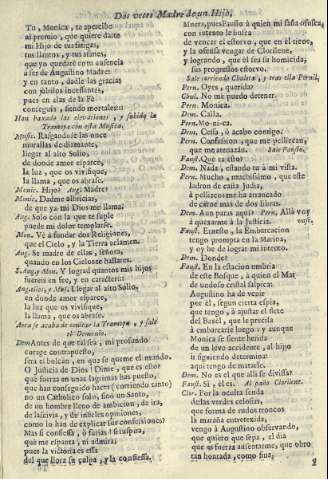 Dos veces Madre de un Hijo.
Tu, Monica, te apercibe
al premio, que quiere darte
mi Hijo de tus finezas,
tus llantos, y tus afanes,
que yo quedaré con ausencia
à ser de Augustino Madre:
y en tanto, dadle las gracias
con jubilos incessantes,
pues en alas de la Fè
conseguis, siendo mortales::
Han baxado las elevaciones, y subido la
Tramoya con esta Musica.
Music. Rasgandose las once
murallas de diamante,
llegar al alto Solio,
de donde amor esparce,
la luz, que os vivifique,
la llama, que os abrase.
Monic. Hijo? Aug. Madre?
Monic. Dadme albricias,
de que ya mi Dios me llama:
Aug. Solo con la que te suple
puede mi dolor templarse.
Mon. Vè à fundar dos Religiones,
que el Cielo, y la Tierra aclamen.
Aug. Se madre de ellas, señora,
quando en los Cielos te hallares.
S. Aug. y Mon. Y lograd quantos mis hijos
fueren en fee, y en caracter:
Angeles, y Music. Llegar al alto Solio,
en donde amor esparce,
la luz que os vivifique,
la llama, que os abrase.
Aora se acaba de ocultar la Tramoya, y sale
el Demonio.
Dem. Antes de que salsea, mi profanado
corage contrapuesto,
sera el bolcàn, en que se queme el mundo.
O Justicia de Dios! Dime, què es esto?
què fuerza en unas lagrimas has puesto,
que han conseguido hacer (corriendo tanto)
no un Catholico solo, sino un Santo,
de un hombre lleno de ambicion, de ira,
de lascivia, y de infieles opiniones,
como lo han de explicar sus confesiones?
Mas si confiessa, ò furias! si suspira,
què me espanta, ni admira,
pues la victoria es essa
del que llora su culpa, y la confiessa.
pues si Fausto à quien mi saña ofusca,
con intento le busca
de vencer el estorvo, que en èl tiene,
y la ossadia vengar de Clorilene,
y logrando, que èl sea su homicida,
sus progressos estorvo.
Sale corriendo Cholete, y tras ella Pernil.
Pern. Oyes, querida?
Chol. No me puedo detener.
Pern. Monica.
Dem. Calla.
Pern. Mo-ni-ca.
Dem. Cessa, ò acabo contigo.
Pern. Confussion, que me pellizcan,
que me atenazan. Sale Fausto.
Fausf. Què es esto?
Dem. Nada, estando tu à mi vista.
Pern. Mucho, muchissimo, que este
ladron de casta Judia,
à pellizcos me ha arrancado
de carne mas de dos libras.
Dem. Aun paras aqui? Pern. Allà voy
à quexarme à la Justicia. vase.
Fausf. Ernesto, la Embarcacion
tengo prompta en la Marina,
y oy he de lograr mi intento.
Dem. Donde?
Fausf. En la estacion umbria
de este Bosque, à quien el Mar
de undoso cristal salpica:
Augustino ha de venir
por èl, segun cierta espia,
que tengo, à ajustar el flete
del Baxèl, que le precisa
à embarcarse luego: y aunque
Monica se siente herida
de un leve accidente, al hijo
ir siguiendo determina:
aqui tengo de matarle.
Dem. No es el que alli se divisa?
Fausf. Si, èl es. Al paño Clorilene.
Clor. Por la oculta senda
de las verdes celosias,
que forma de rudos troncos
la maraña entretexida,
vengo à Augustino observando,
que quiero que sepa, el dia
que es fuerza ausentarme, que obro
tan honrada, como fina,